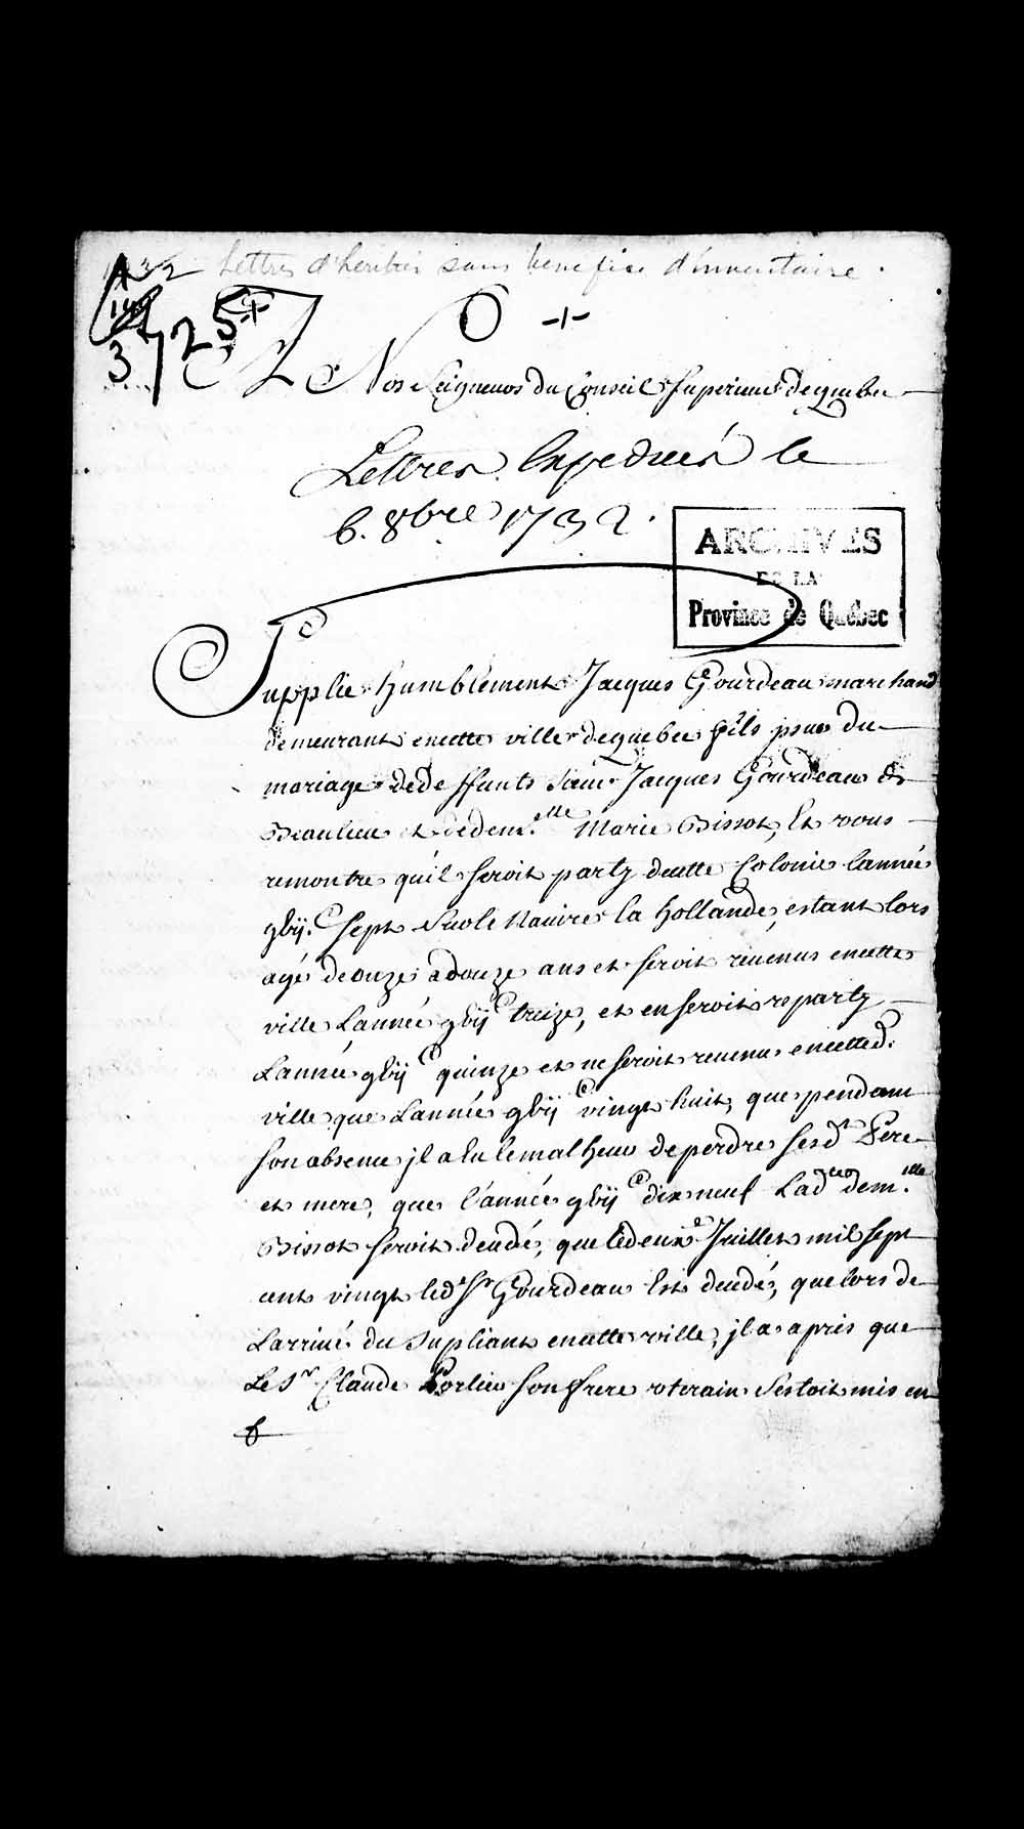 1732 Lettres d'heritier sans benefice d'inventaire.
3725
A Nos Seigneurs du Conseil Superieur de quebec
Lettres Expediées le
6. 8bre 1732.
ARCHIVES
DE LA
Province de Québec
Supplie humblement Jacques Gourdeau marchand
demeurant en cette ville de quebec fils yssu du
mariage de deffunts Sieur Jacques Gourdeau de
Beaulieu et de dem.elle Marie Bissot, Et vous
remontre quil seroit party de cette Colonie lannée
gbij.C sept sur le Navire la hollande, estant lors
agé de onze a douze ans et seroit revenu en cette
ville Lannée gbijC treize, et en seroit reparty
Lannée gbijC quinze et ne seroit revenu en cetted.
ville que Lannée gbijC vingt huit, que pendant
son absence jl a Eu le malheur de perdre sesd. Pere
et mere, que l'année gbijC dix neuf Lad. dem.elle
Bissot seroit decedé, que le deuxe Juillet mil sept
cent vingt led. Sr Gourdeau Est decedé, que lors de
Larrivé du Supliant en cette ville, jl a apris que
Le Sr Claude Porlier son frere uterain Sestoit mis en